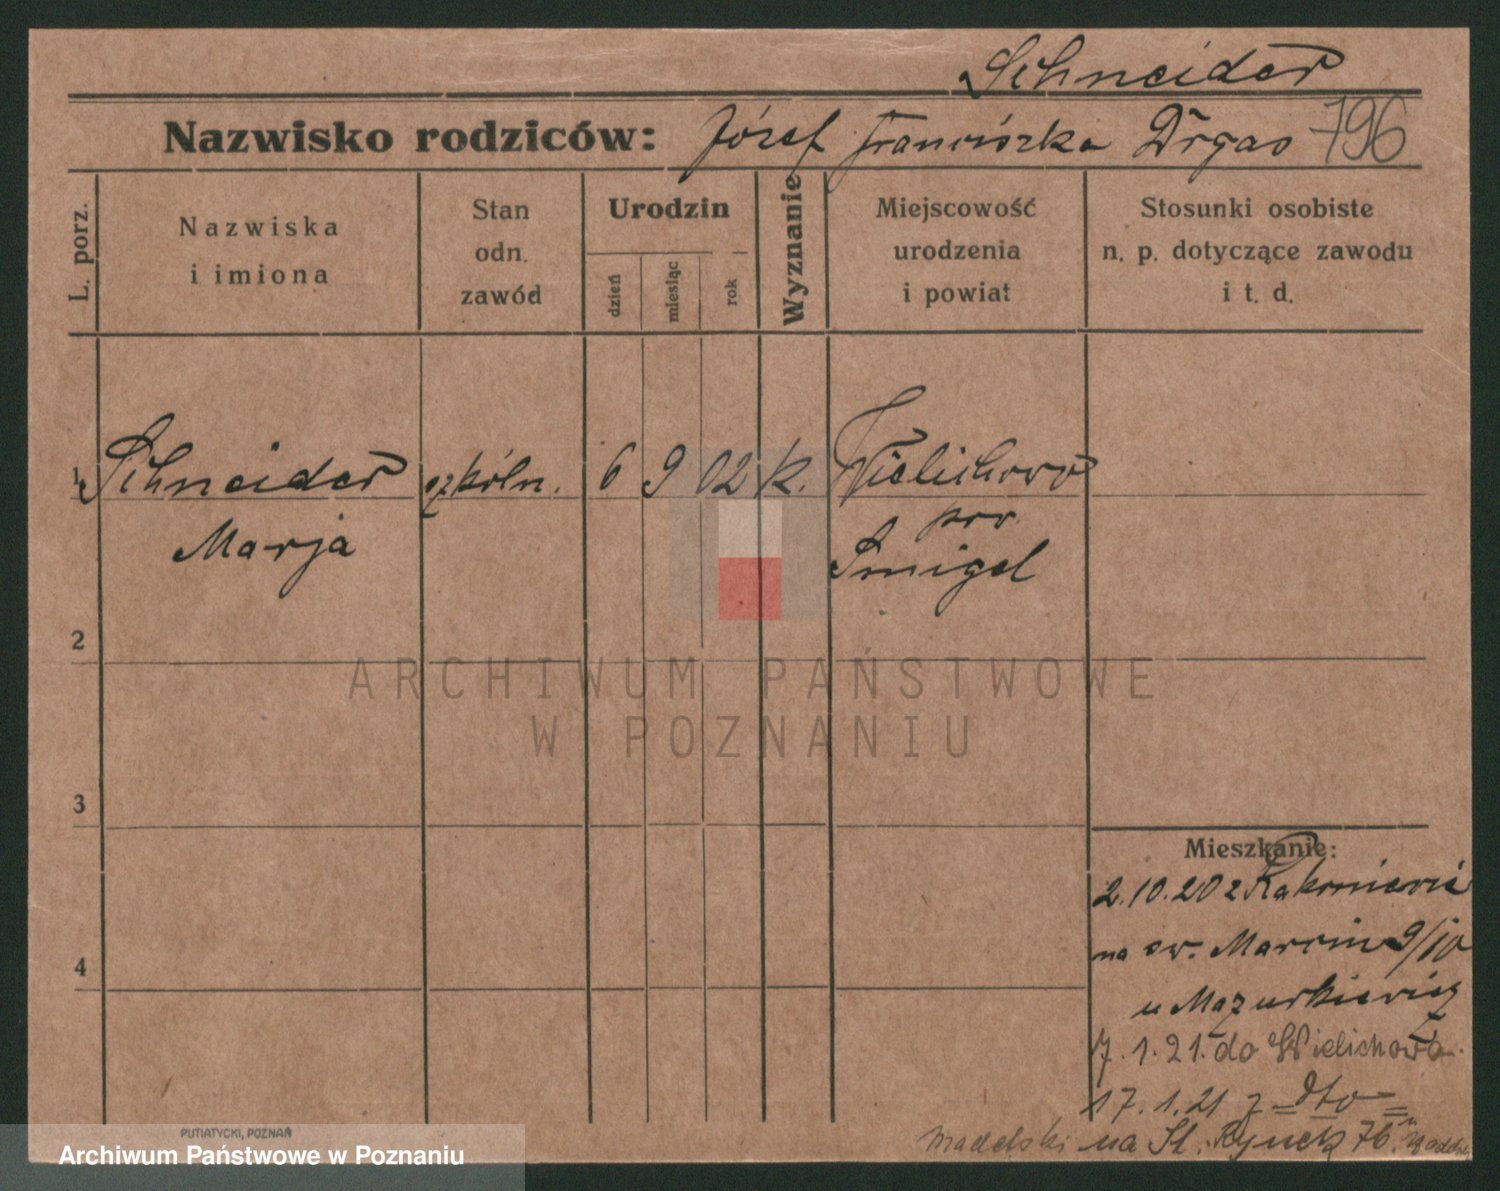 Schneider
Nazwisko rodziców: Józef Franciszka Drgas 796
L. porz.
Nazwiska
i imiona
Stan
odn.
zawód
Urodzin
dzień
miesiąc
rok
Wyznanie
Miejscowość
urodzenia
i powiat
Stosunki osobiste
n. p. dotyczące zawodu
i t. d.
1 Schneider szkóln. 6 9 02 k. Wielichowo
Marja
pow.
Śmigel
2
ARCHIWUM PAŃSTWOWE
W POZNANIU
3
4
Mieszkanie:
2.10.20 z Rakoniewic
na św. Marcin 9/10
u Mazurkiewicz
7.1.21. do Wielichowa.
17.1.21 z =dto=
na St. Rynek 76.
PUTIATYCKI, POZNAŃ
Archiwum Państwowe w Poznaniu